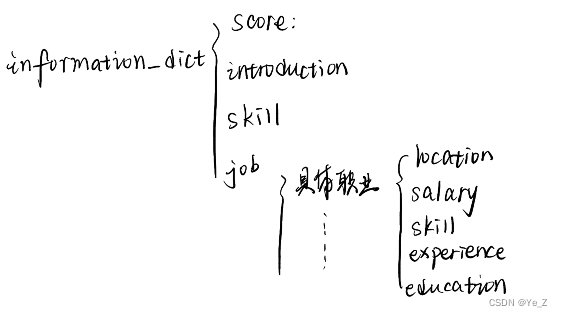 information_dict
score:
introduction
skill
job
具体职业
location
salary
skill
experience
education
CSDN @Ye_Z